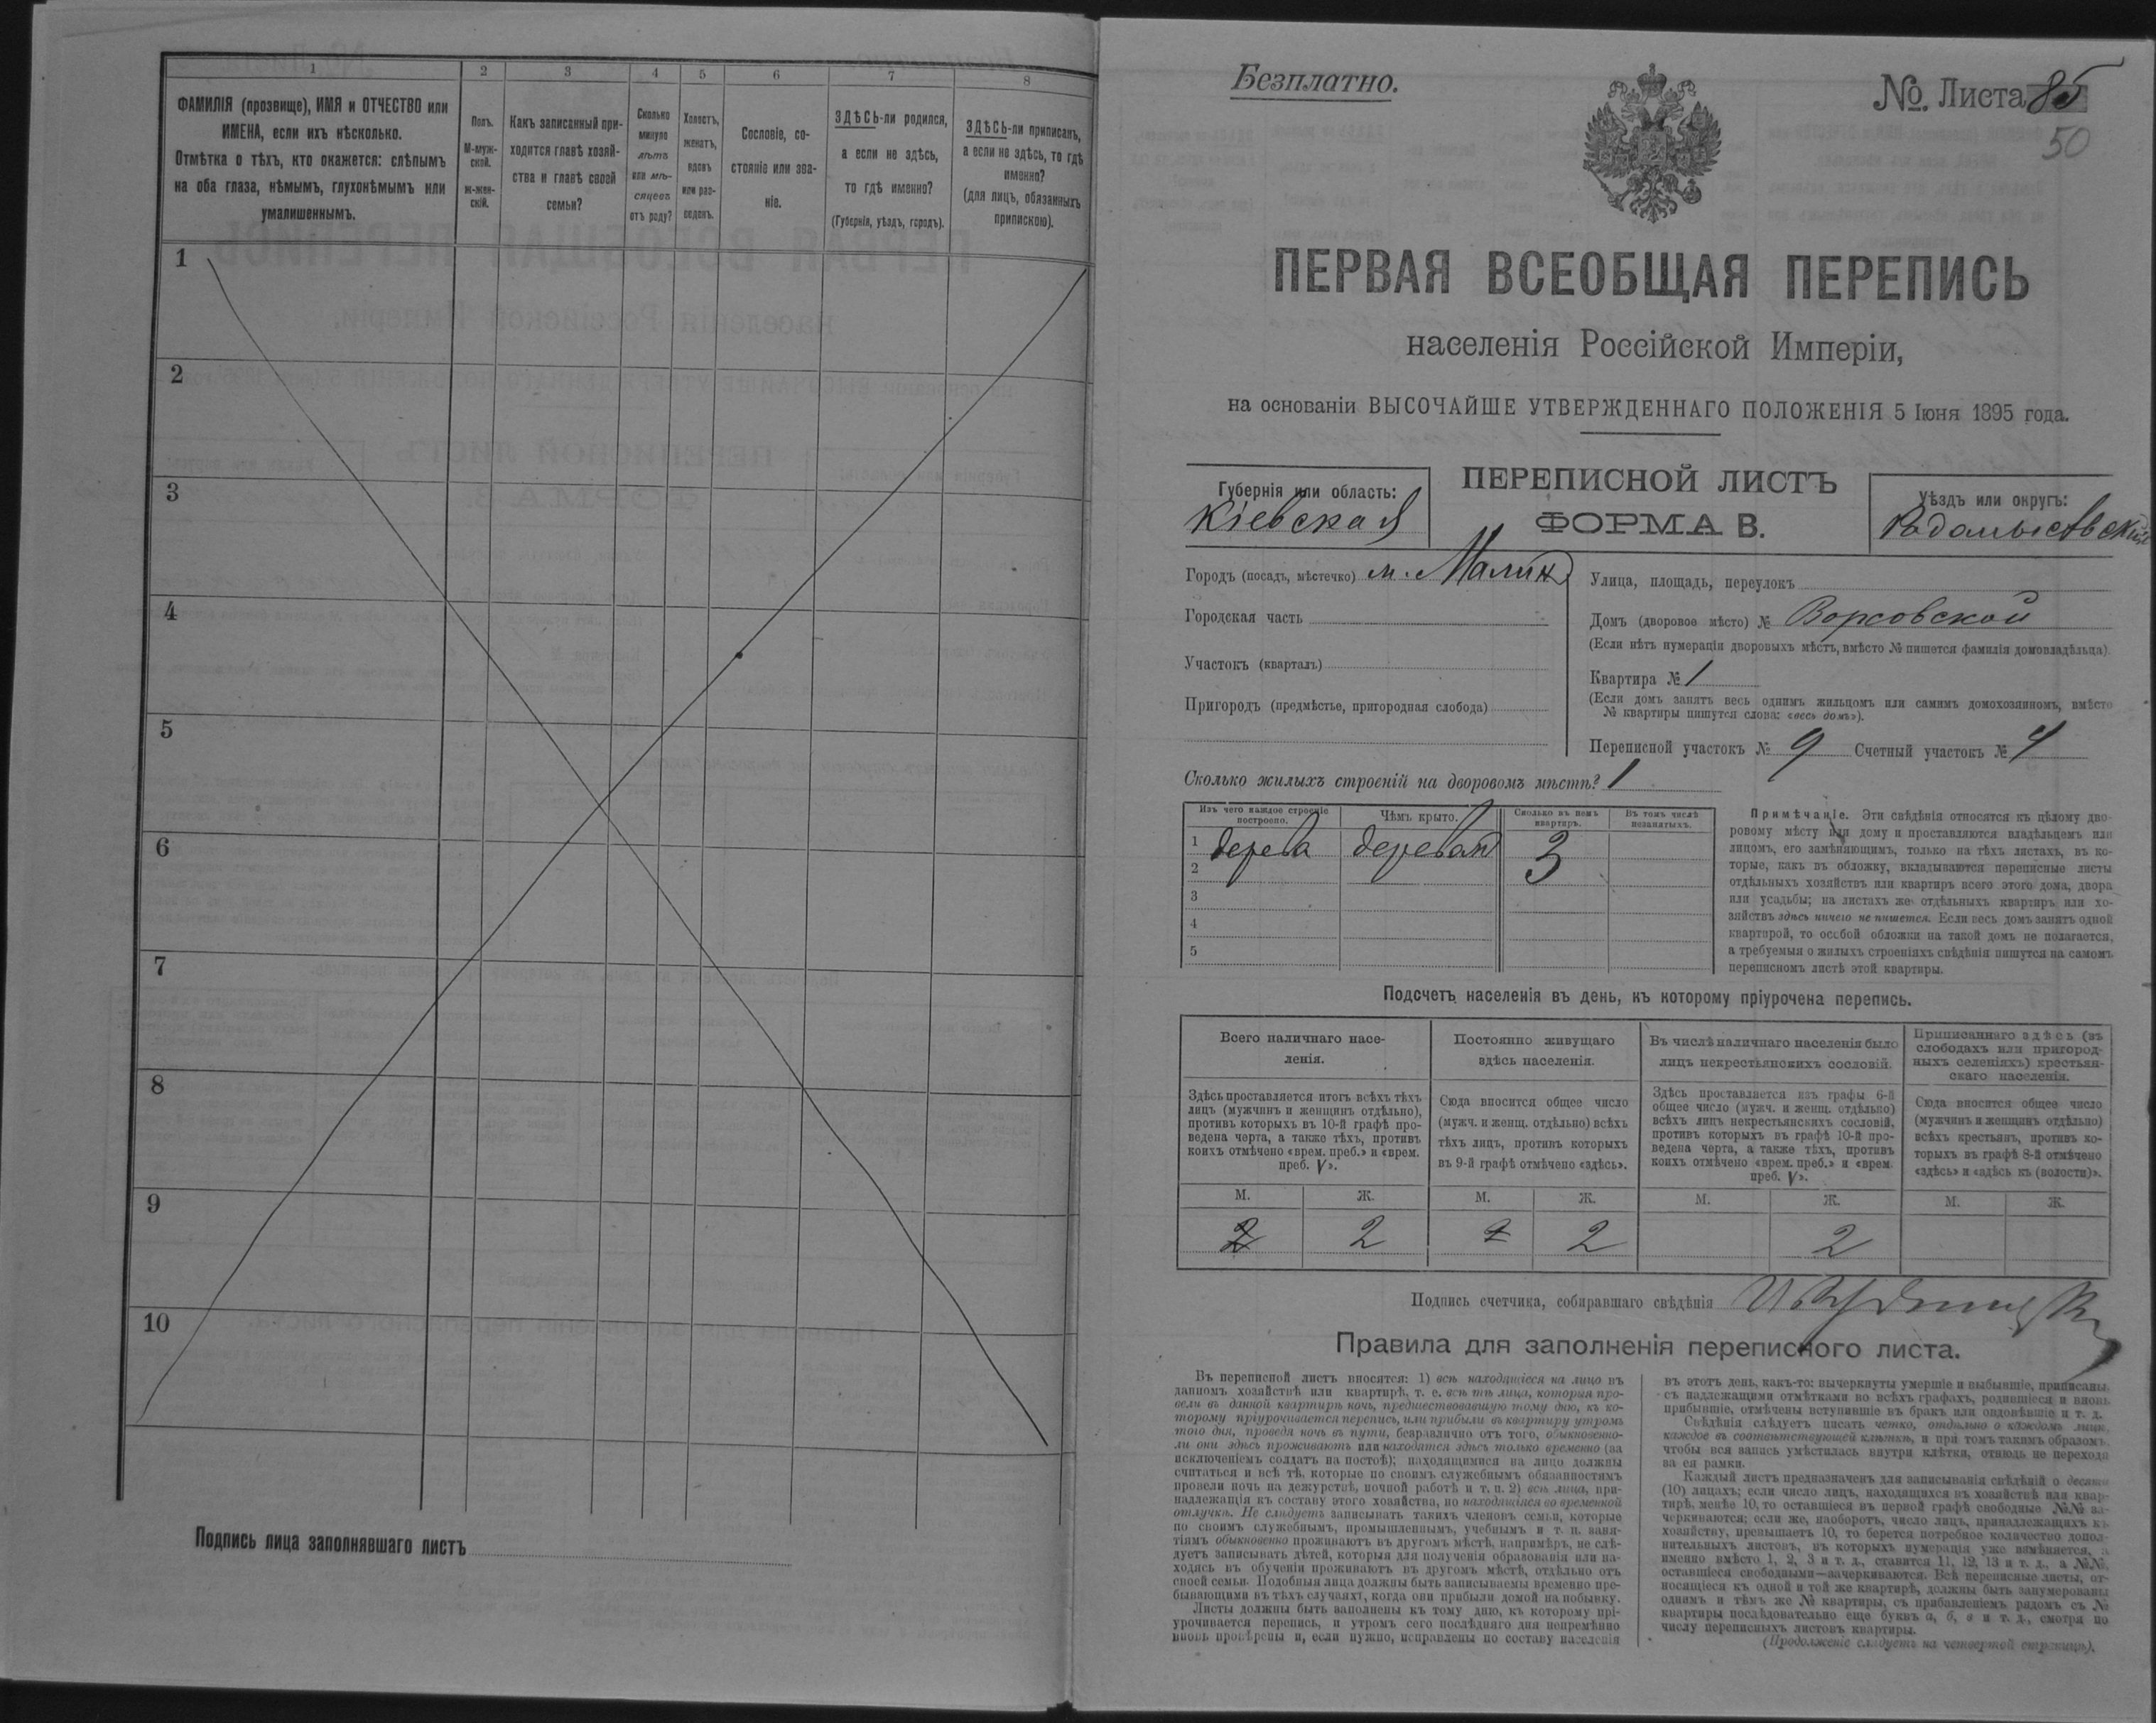 1 2 3 4 5 6 7 8
ФАМИЛІЯ (прозвище), ИМЯ и ОТЧЕСТВО или
ИМЕНА, если ихъ нѣсколько.
Отмѣтка о тѣхъ, кто окажется: слѣпымъ
на оба глаза, нѣмымъ, глухонѣмымъ или
умалишеннымъ.
Полъ.
М-муж-
ской.
ж-жен-
скій.
Какъ записанный при-
ходится главѣ хозяй-
ства и главѣ своей
семьи?
Сколько
минуло
лѣтъ
или мѣ-
сяцевъ
отъ роду?
Холостъ,
женатъ,
вдовъ
или раз-
веденъ.
Сословіе, со-
стояніе или зва-
ніе.
ЗДѢСЬ-ли родился,
а если не здѣсь,
то гдѣ именно?
(Губернія, уѣздъ, городъ).
ЗДѢСЬ-ли приписанъ,
а если не здѣсь, то гдѣ
именно?
(для лицъ, обязанныхъ
припискою).
1
2
3
4
5
6
7
8
9
10
Подпись лица заполнявшаго листъ
Безплатно.
№. Листа 85
50
ПЕРВАЯ ВСЕОБЩАЯ ПЕРЕПИСЬ
населенія Россійской Имперіи,
на основаніи ВЫСОЧАЙШЕ УТВЕРЖДЕННАГО ПОЛОЖЕНІЯ 5 Іюня 1895 года.
Губернія или область:
Кіевская
ПЕРЕПИСНОЙ ЛИСТЪ
ФОРМА В.
Уѣздъ или округъ:
Радомысльскій
Городъ (посадъ, мѣстечко) м. Малинъ
Городская часть
Участокъ (кварталъ)
Пригородъ (предмѣстье, пригородная слобода)
Улица, площадь, переулокъ
Домъ (дворовое мѣсто) № Ворсовской
(Если нѣтъ нумераціи дворовыхъ мѣстъ, вмѣсто № пишется фамилія домовладѣльца).
Квартира № 1
(Если домъ занятъ весь однимъ жильцомъ или самимъ домохозяиномъ, вмѣсто
№ квартиры пишутся слова: «весь домъ»).
Переписной участокъ № 9 Счетный участокъ № 4
Сколько жилыхъ строеній на дворовомъ мѣстѣ? 1
Изъ чего каждое строеніе
построено.
Чѣмъ крыто.
Сколько въ немъ
квартиръ.
Въ томъ числѣ
незанятыхъ.
1 дерева деревомъ 3
2
3
4
5
Примѣчаніе. Эти свѣдѣнія относятся къ цѣлому дво-
ровому мѣсту или дому и проставляются владѣльцемъ или
лицомъ, его замѣняющимъ, только на тѣхъ листахъ, въ ко-
торые, какъ въ обложку, вкладываются переписные листы
отдѣльныхъ хозяйствъ или квартиръ всего этого дома, двора
или усадьбы; на листахъ же отдѣльныхъ квартиръ или хо-
зяйствъ здѣсь ничего не пишется. Если весь домъ занятъ одной
квартирой, то особой обложки на такой домъ не полагается,
а требуемыя о жилыхъ строеніяхъ свѣдѣнія пишутся на самомъ
переписномъ листѣ этой квартиры.
Подсчетъ населенія въ день, къ которому пріурочена перепись.
Всего наличнаго насе-
ленія.
Постоянно живущаго
здѣсь населенія.
Въ числѣ наличнаго населенія было
лицъ некрестьянскихъ сословій.
Приписаннаго здѣсь (въ
слободахъ или пригород-
ныхъ селеніяхъ) крестьян-
скаго населенія.
Здѣсь проставляется итогъ всѣхъ тѣхъ
лицъ (мужчинъ и женщинъ отдѣльно),
противъ которыхъ въ 10-й графѣ про-
ведена черта, а также тѣхъ, противъ
коихъ отмѣчено «врем. преб.» и «врем.
преб. V».
Сюда вносится общее число
(мужч. и женщ. отдѣльно) всѣхъ
тѣхъ лицъ, противъ которыхъ
въ 9-й графѣ отмѣчено «здѣсь».
Здѣсь проставляется изъ графы 6-й
общее число (мужч. и женщ. отдѣльно)
всѣхъ лицъ некрестьянскихъ сословій,
противъ которыхъ въ графѣ 10-й про-
ведена черта, а также тѣхъ, противъ
коихъ отмѣчено «врем. преб.» и «врем.
преб. V».
Сюда вносится общее число
(мужчинъ и женщинъ отдѣльно)
всѣхъ крестьянъ, противъ ко-
торыхъ въ графѣ 8-й отмѣчено
«здѣсь» и «здѣсь къ (волости)».
М. Ж. М. Ж. М. Ж. М. Ж.
2 2 2 2 2
Подпись счетчика, собиравшаго свѣдѣнія
Правила для заполненія переписного листа.
Въ переписной листъ вносятся: 1) всѣ находящіеся на лицо въ
данномъ хозяйствѣ или квартирѣ, т. е. всѣ тѣ лица, которыя про-
вели въ данной квартирѣ ночь, предшествовавшую тому дню, къ ко-
торому пріурочивается перепись, или прибыли въ квартиру утромъ
того дня, проведя ночь въ пути, безразлично отъ того, обыкновенно-
ли они здѣсь проживаютъ или находятся здѣсь только временно (за
исключеніемъ солдатъ на постоѣ); находящимися на лицо должны
считаться и всѣ тѣ, которые по своимъ служебнымъ обязанностямъ
провели ночь на дежурствѣ, ночной работѣ и т. п. 2) всѣ лица, при-
надлежащія къ составу этого хозяйства, но находящіяся во временной
отлучкѣ. Не слѣдуетъ записывать такихъ членовъ семьи, которые
по своимъ служебнымъ, промышленнымъ, учебнымъ и т. п. заня-
тіямъ обыкновенно проживаютъ въ другомъ мѣстѣ, напримѣръ, не слѣ-
дуетъ записывать дѣтей, которыя для полученія образованія или на-
ходясь въ обученіи проживаютъ въ другомъ мѣстѣ, отдѣльно отъ
своей семьи. Подобныя лица должны быть записываемы временно пре-
бывающими въ тѣхъ случаяхъ, когда они прибыли домой на побывку.
Листы должны быть заполнены къ тому дню, къ которому прі-
урочивается перепись, и утромъ сего послѣдняго дня непремѣнно
вновь провѣрены и, если нужно, исправлены по составу населенія
въ этотъ день, какъ-то: вычеркнуты умершіе и выбывшіе, приписаны,
съ надлежащими отмѣтками во всѣхъ графахъ, родившіеся и вновь
прибывшіе, отмѣчены вступившіе въ бракъ или овдовѣвшіе и т. д.
Свѣдѣнія слѣдуетъ писать четко, отдѣльно о каждомъ лицѣ,
каждое въ соотвѣтствующей клѣткѣ, и при томъ такимъ образомъ,
чтобы вся запись умѣстилась внутри клѣтки, отнюдь не переходя
за ея рамки.
Каждый листъ предназначенъ для записыванія свѣдѣній о десяти
(10) лицахъ; если число лицъ, находящихся въ хозяйствѣ или квар-
тирѣ, менѣе 10, то оставшіеся въ первой графѣ свободные №№ за-
черкиваются; если же, наоборотъ, число лицъ, принадлежащихъ къ
хозяйству, превышаетъ 10, то берется потребное количество допол-
нительныхъ листовъ, въ которыхъ нумерація уже измѣняется, а
именно вмѣсто 1, 2, 3 и т. д., ставится 11, 12, 13 и т. д., а №№,
оставшіеся свободными—зачеркиваются. Всѣ переписные листы, от-
носящіеся къ одной и той же квартирѣ, должны быть занумерованы
однимъ и тѣмъ же № квартиры, съ прибавленіемъ рядомъ съ №
квартиры послѣдовательно еще буквъ а, б, в и т. д., смотря по
числу переписныхъ листовъ квартиры.
(Продолженіе слѣдуетъ на четвертой страницѣ).